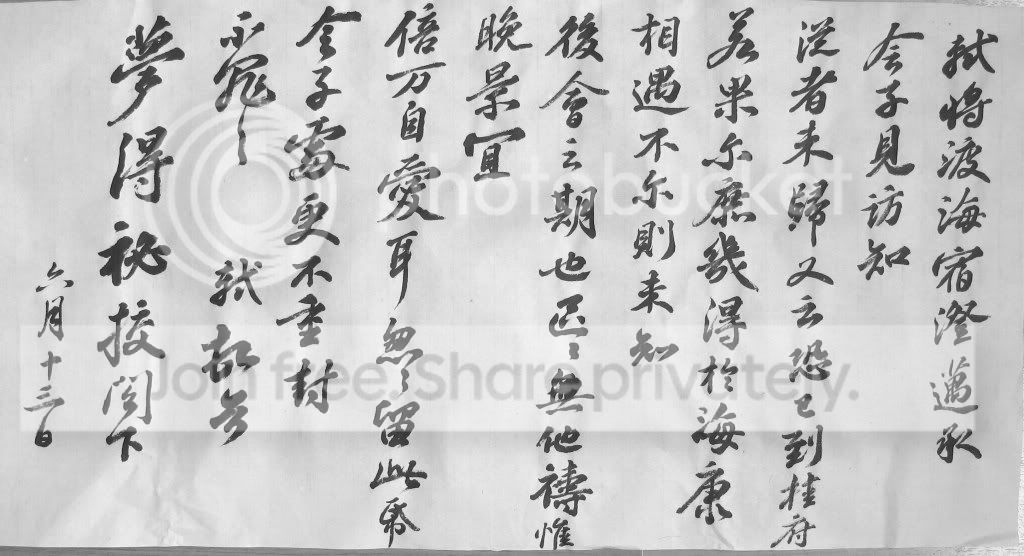 軾將渡海宿澄邁承
令子見訪知
從者未歸又云恐已到桂府
若果尔庶幾得於海康
相遇不尔則未知
後會之期也區〻無他禱惟
晚景宜
倍万自愛耳忽〻留此帋
令子處更不重封
不罪〻 軾頓首
夢得祕校閣下
六月十三日
photobucket
Join free. Share privately.